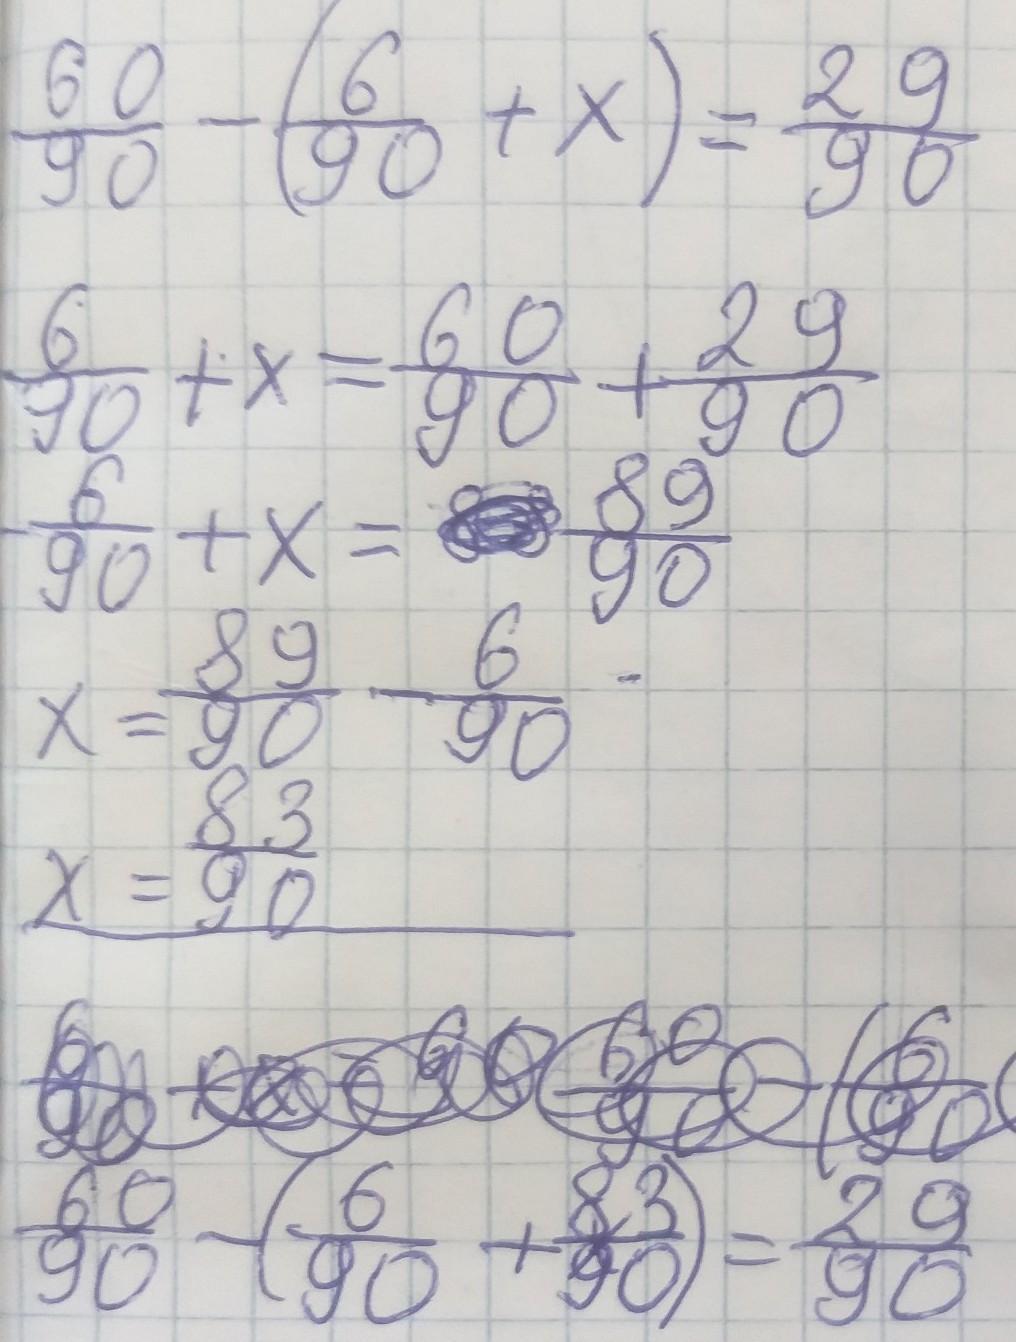 60/90 - (6/90 + x) = 29/90
6/90 + x = 60/90 + 29/90
6/90 + x = 89/90
x = 89/90 - 6/90
x = 83/90
60/90 - (6/90 + 83/90) = 29/90